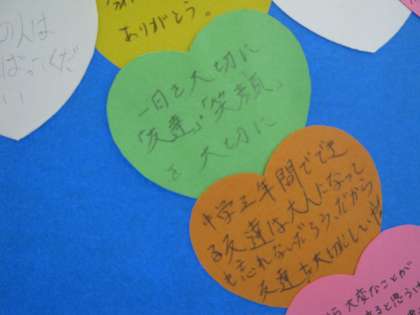 の人は
ばってくだ
い
ありがとう。
一日を大切に
「友達」「笑顔」
を大切に
中学三年間ででき
る友達は大人になって
も忘れないだろう、だから
友達を大切にしいや
大変なことが
ると思うけ